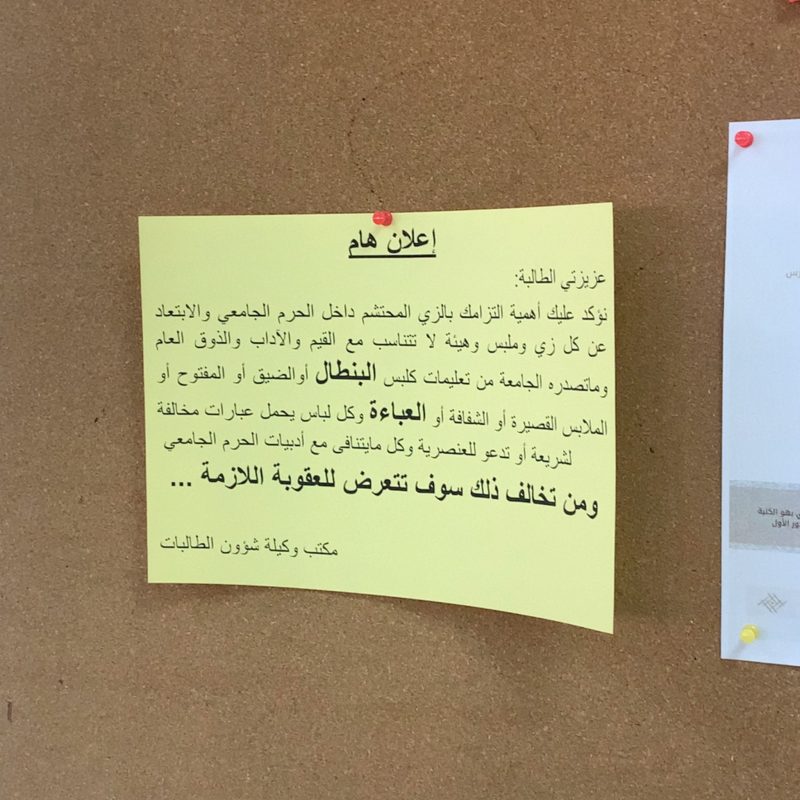 إعلان هام
عزيزتي الطالبة:
نؤكد عليك أهمية التزامك بالزي المحتشم داخل الحرم الجامعي والابتعاد
عن كل زي وملبس وهيئة لا تتناسب مع القيم والآداب والذوق العام
وماتصدره الجامعة من تعليمات كلبس البنطال أوالضيق أو المفتوح أو
الملابس القصيرة أو الشفافة أو العباءة وكل لباس يحمل عبارات مخالفة
لشريعة أو تدعو للعنصرية وكل مايتنافى مع أدبيات الحرم الجامعي
ومن تخالف ذلك سوف تتعرض للعقوبة اللازمة ...
مكتب وكيلة شؤون الطالبات
بهو الكلية
ور الأول